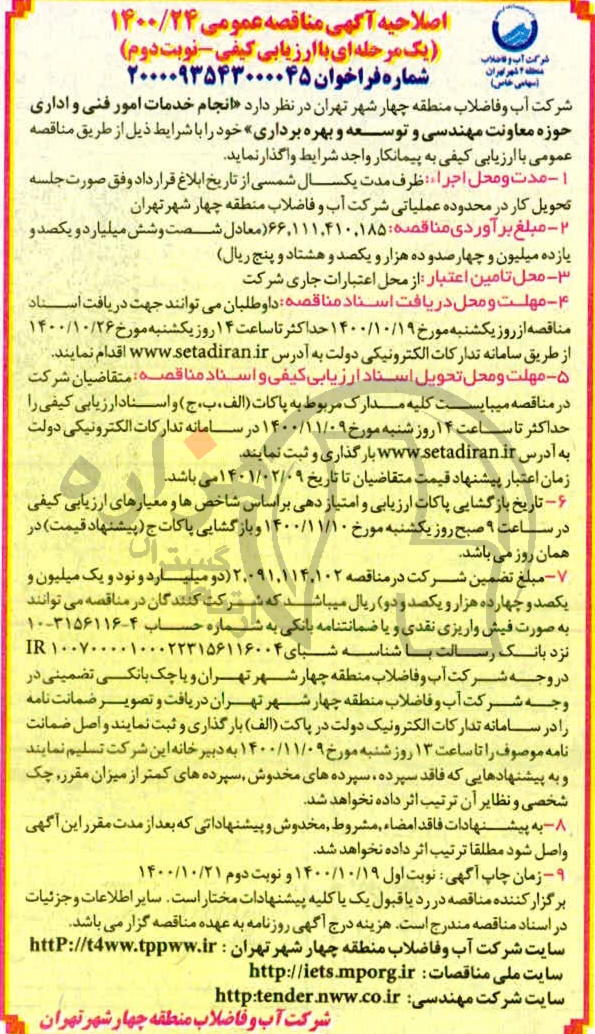 اصلاحیه آگهی مناقصه عمومی ۱۴۰۰/۲۴
(یک مرحله ای با ارزیابی کیفی - نوبت دوم)
شماره فراخوان ۲۰۰۰۰۹۳۵۴۳۰۰۰۰۴۵
شرکت آب و فاضلاب
منطقه ۴ شهر تهران
(سهامی خاص)
شرکت آب وفاضلاب منطقه چهار شهر تهران در نظر دارد «انجام خدمات امور فنی و اداری
حوزه معاونت مهندسی و توسعه و بهره برداری» خود را با شرایط ذیل از طریق مناقصه
عمومی با ارزیابی کیفی به پیمانکار واجد شرایط واگذار نماید.
۱- مدت و محل اجراء: ظرف مدت یکسال شمسی از تاریخ ابلاغ قرارداد وفق صورت جلسه
تحویل کار در محدوده عملیاتی شرکت آب و فاضلاب منطقه چهار شهر تهران
۲- مبلغ برآوردی مناقصه: ۶۶,۱۱۱,۴۱۰,۱۸۵(معادل شصت وشش میلیارد و یکصد و
یازده میلیون و چهارصدو ده هزار و یکصد و هشتاد و پنج ریال)
۳- محل تامین اعتبار: از محل اعتبارات جاری شرکت
۴- مهلت و محل دریافت اسناد مناقصه: داوطلبان می توانند جهت دریافت اسناد
مناقصه از روز یکشنبه مورخ ۱۴۰۰/۱۰/۱۹ حداکثر تا ساعت ۱۴ روز یکشنبه مورخ ۱۴۰۰/۱۰/۲۶
از طریق سامانه تدارکات الکترونیکی دولت به آدرس www.setadiran.ir اقدام نمایند.
۵- مهلت و محل تحویل اسناد ارزیابی کیفی و اسناد مناقصه: متقاضیان شرکت
در مناقصه میبایست کلیه مدارک مربوط به پاکات (الف،ب،ج) و اسناد ارزیابی کیفی را
حداکثر تا ساعت ۱۴ روز شنبه مورخ ۱۴۰۰/۱۱/۰۹ در سامانه تدارکات الکترونیکی دولت
به آدرس www.setadiran.ir بارگذاری و ثبت نمایند.
زمان اعتبار پیشنهاد قیمت متقاضیان تا تاریخ ۱۴۰۱/۰۲/۰۹ می باشد.
۶- تاریخ بازگشایی پاکات ارزیابی و امتیاز دهی براساس شاخص ها و معیارهای ارزیابی کیفی
در ساعت ۹ صبح روز یکشنبه مورخ ۱۴۰۰/۱۱/۱۰ و بازگشایی پاکات ج (پیشنهاد قیمت) در
همان روز می باشد.
۷- مبلغ تضمین شرکت در مناقصه ۲,۰۹۱,۱۱۴,۱۰۲ (دو میلیارد و نود و یک میلیون و
یکصد و چهارده هزار و یکصد و دو) ریال میباشد که شرکت کنندگان در مناقصه می توانند
به صورت فیش واریزی نقدی و یا ضمانتنامه بانکی به شماره حساب ۴-۳۱۵۶۱۱۶-۱۰
نزد بانک رسالت با شناسه شبای IR ۱۰۰۷۰۰۰۰۱۰۰۰۲۲۳۱۵۶۱۱۶۰۰۴
در وجه شرکت آب وفاضلاب منطقه چهار شهر تهران و یا چک بانکی تضمینی در
وجه شرکت آب و فاضلاب منطقه چهار شهر تهران دریافت و تصویر ضمانت نامه
را در سامانه تدارکات الکترونیک دولت در پاکت (الف) بارگذاری و ثبت نمایند و اصل ضمانت
نامه موصوف را تا ساعت ۱۳ روز شنبه مورخ ۱۴۰۰/۱۱/۰۹ به دبیرخانه این شرکت تسلیم نمایند
و به پیشنهادهایی که فاقد سپرده، سپرده های مخدوش ,سپرده های کمتر از میزان مقرر, چک
شخصی و نظایر آن ترتیب اثر داده نخواهد شد.
۸- به پیشنهادات فاقد امضاء ,مشروط ,مخدوش و پیشنهاداتی که بعد از مدت مقرر این آگهی
واصل شود مطلقا ترتیب اثر داده نخواهد شد.
۹- زمان چاپ آگهی: نوبت اول ۱۴۰۰/۱۰/۱۹ و نوبت دوم ۱۴۰۰/۱۰/۲۱
برگزار کننده مناقصه در رد یا قبول یک یا کلیه پیشنهادات مختار است. سایر اطلاعات و جزئیات
در اسناد مناقصه مندرج است. هزینه درج آگهی روزنامه به عهده مناقصه گزار می باشد.
سایت شرکت آب وفاضلاب منطقه چهار شهر تهران : httP://t4ww.tppww.ir
سایت ملی مناقصات: http://iets.mporg.ir
سایت شرکت مهندسی: http:tender.nww.co.ir
شرکت آب و فاضلاب منطقه چهار شهر تهران